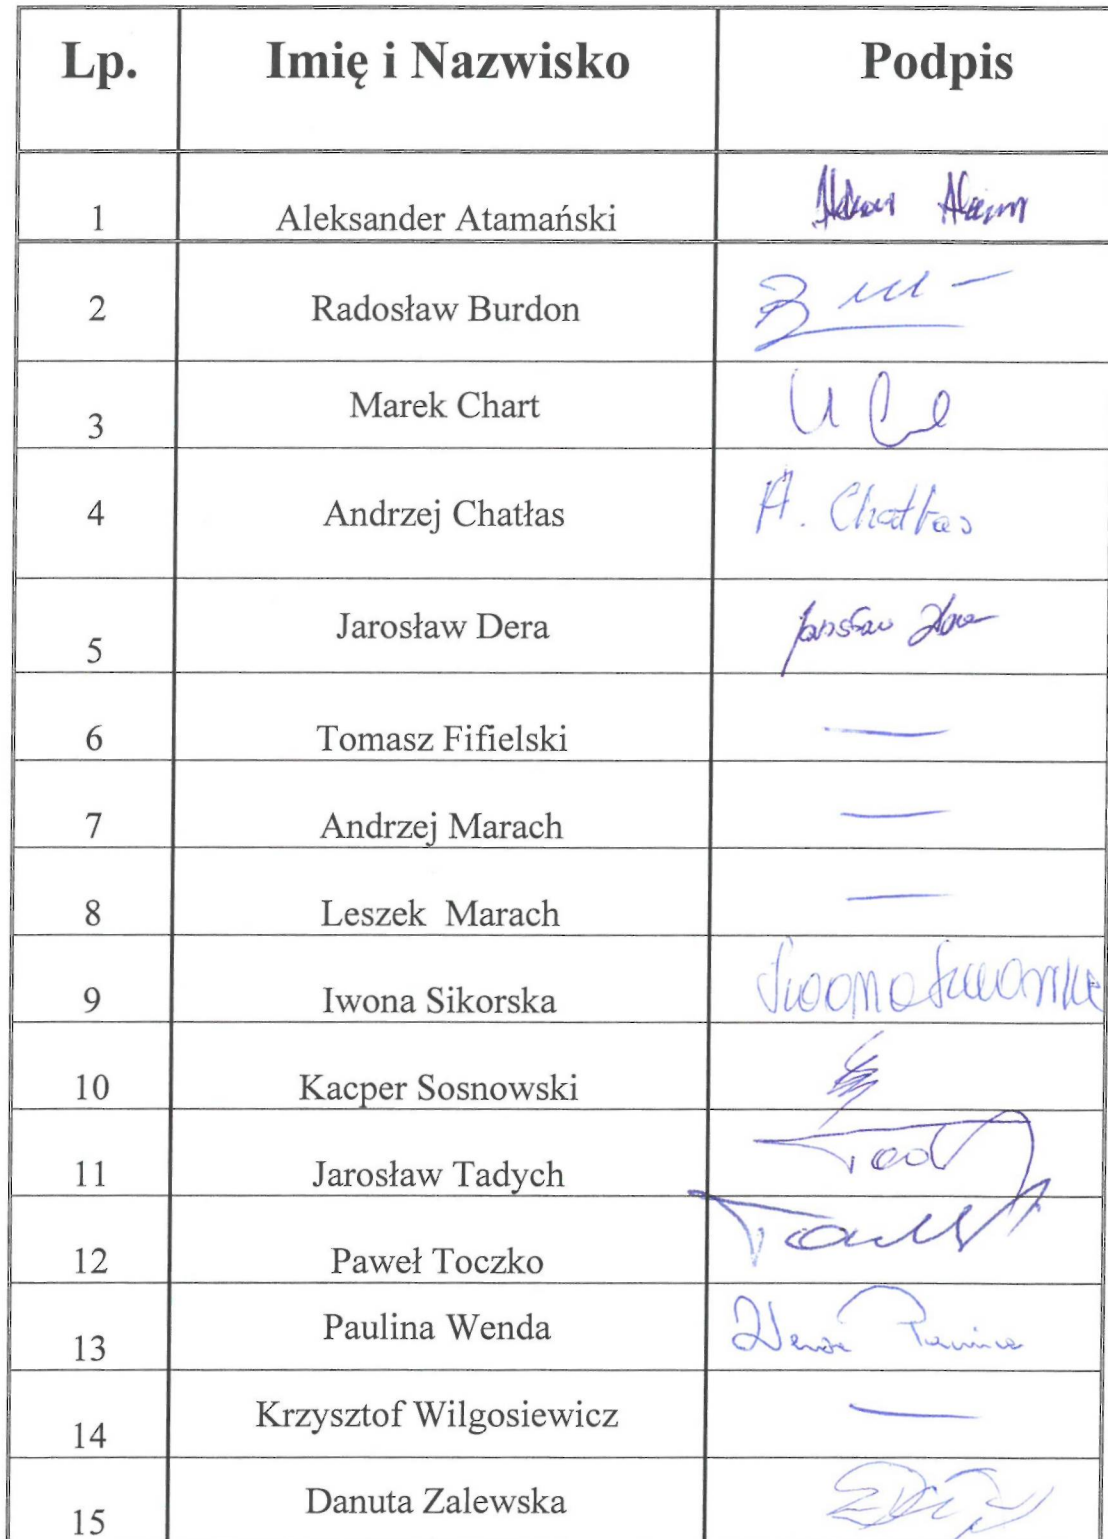 Lp. Imię i Nazwisko Podpis
1 Aleksander Atamański
2 Radosław Burdon
3 Marek Chart
4 Andrzej Chatłas A. Chatłas
5 Jarosław Dera Jarosław Dera
6 Tomasz Fifielski —
7 Andrzej Marach —
8 Leszek Marach —
9 Iwona Sikorska Iwona Sikorska
10 Kacper Sosnowski
11 Jarosław Tadych
12 Paweł Toczko
13 Paulina Wenda Wenda Paulina
14 Krzysztof Wilgosiewicz —
15 Danuta Zalewska